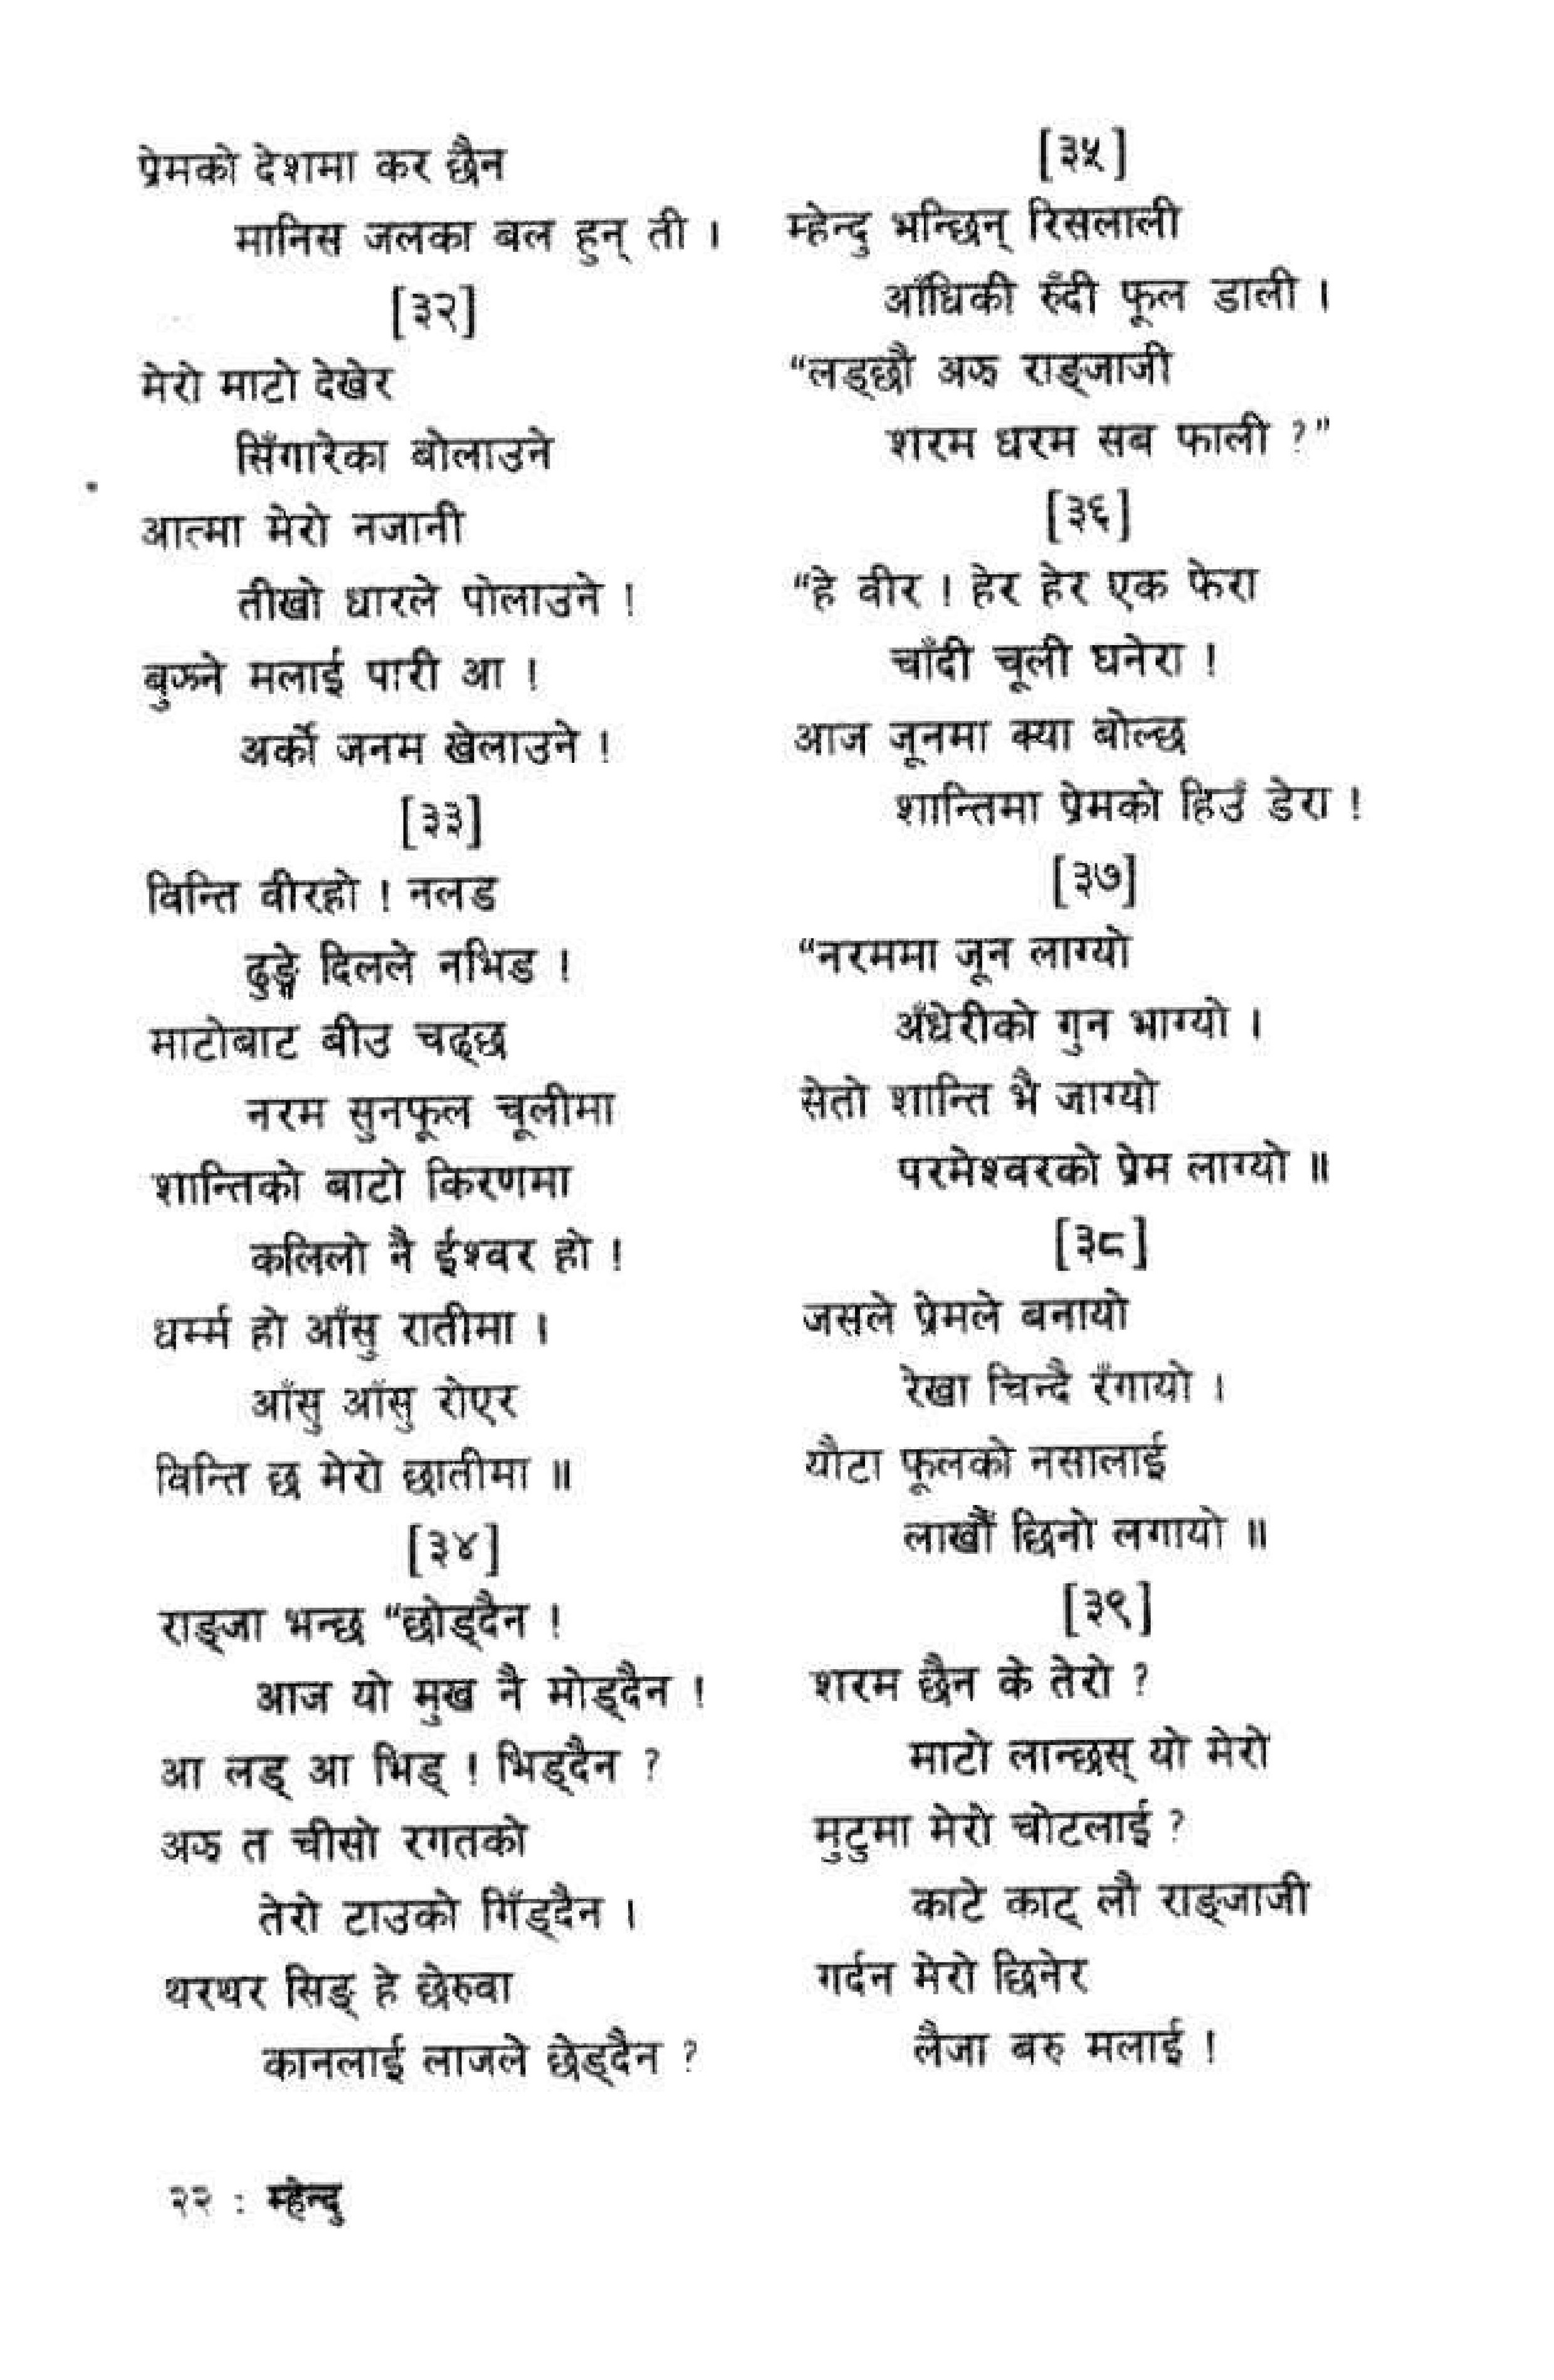 प्रेमको देशमा कर छैन
मानिस जलका बल हुन् ती ।
[३२]
मेरो माटो देखेर
सिँगारेका बोलाउने
आत्मा मेरो नजानी
तीखो धारले पोलाउने !
बुझ्ने मलाई पारी आ !
अर्को जनम खेलाउने !
[३३]
विन्ति वीरहो ! नलड
ढुङ्गे दिलले नभिड !
माटोबाट बीउ चढ्छ
नरम सुनफूल चूलीमा
शान्तिको बाटो किरणमा
कलिलो नै ईश्वर हो !
धर्म्म हो आँसु रातीमा ।
आँसु आँसु रोएर
विन्ति छ मेरो छातीमा ॥
[३४]
राङ्जा भन्छ “छोड्दैन !
आज यो मुख नै मोड्दैन !
आ लड् आ भिड् ! भिड्दैन ?
अझ त चीसो रगतको
तेरो टाउको गिँड्दैन ।
थरथर सिङ् हे छेरुवा
कानलाई लाजले छेड्दैन ?
[३५]
म्हेन्दु भन्छिन् रिसलाली
आँधिकी रुँदी फूल डाली ।
“लड्छौ अझ राङ्जाजी
शरम धरम सब फाली ?”
[३६]
“हे वीर ! हेर हेर एक फेरा
चाँदी चूली घनेरा !
आज जूनमा क्या बोल्छ
शान्तिमा प्रेमको हिउँ डेरा !
[३७]
“नरममा जून लाग्यो
अँधेरीको गुन भाग्यो ।
सेतो शान्ति भै जाग्यो
परमेश्वरको प्रेम लाग्यो ॥
[३८]
जसले प्रेमले बनायो
रेखा चिन्दै रँगायो ।
यौटा फूलको नसालाई
लाखौँ छिनो लगायो ॥
[३९]
शरम छैन के तेरो ?
माटो लान्छस् यो मेरो
मुटुमा मेरो चोटलाई ?
काटे काट् लौ राङ्जाजी
गर्दन मेरो छिनेर
लैजा बरु मलाई !
२२ : म्हेन्दु